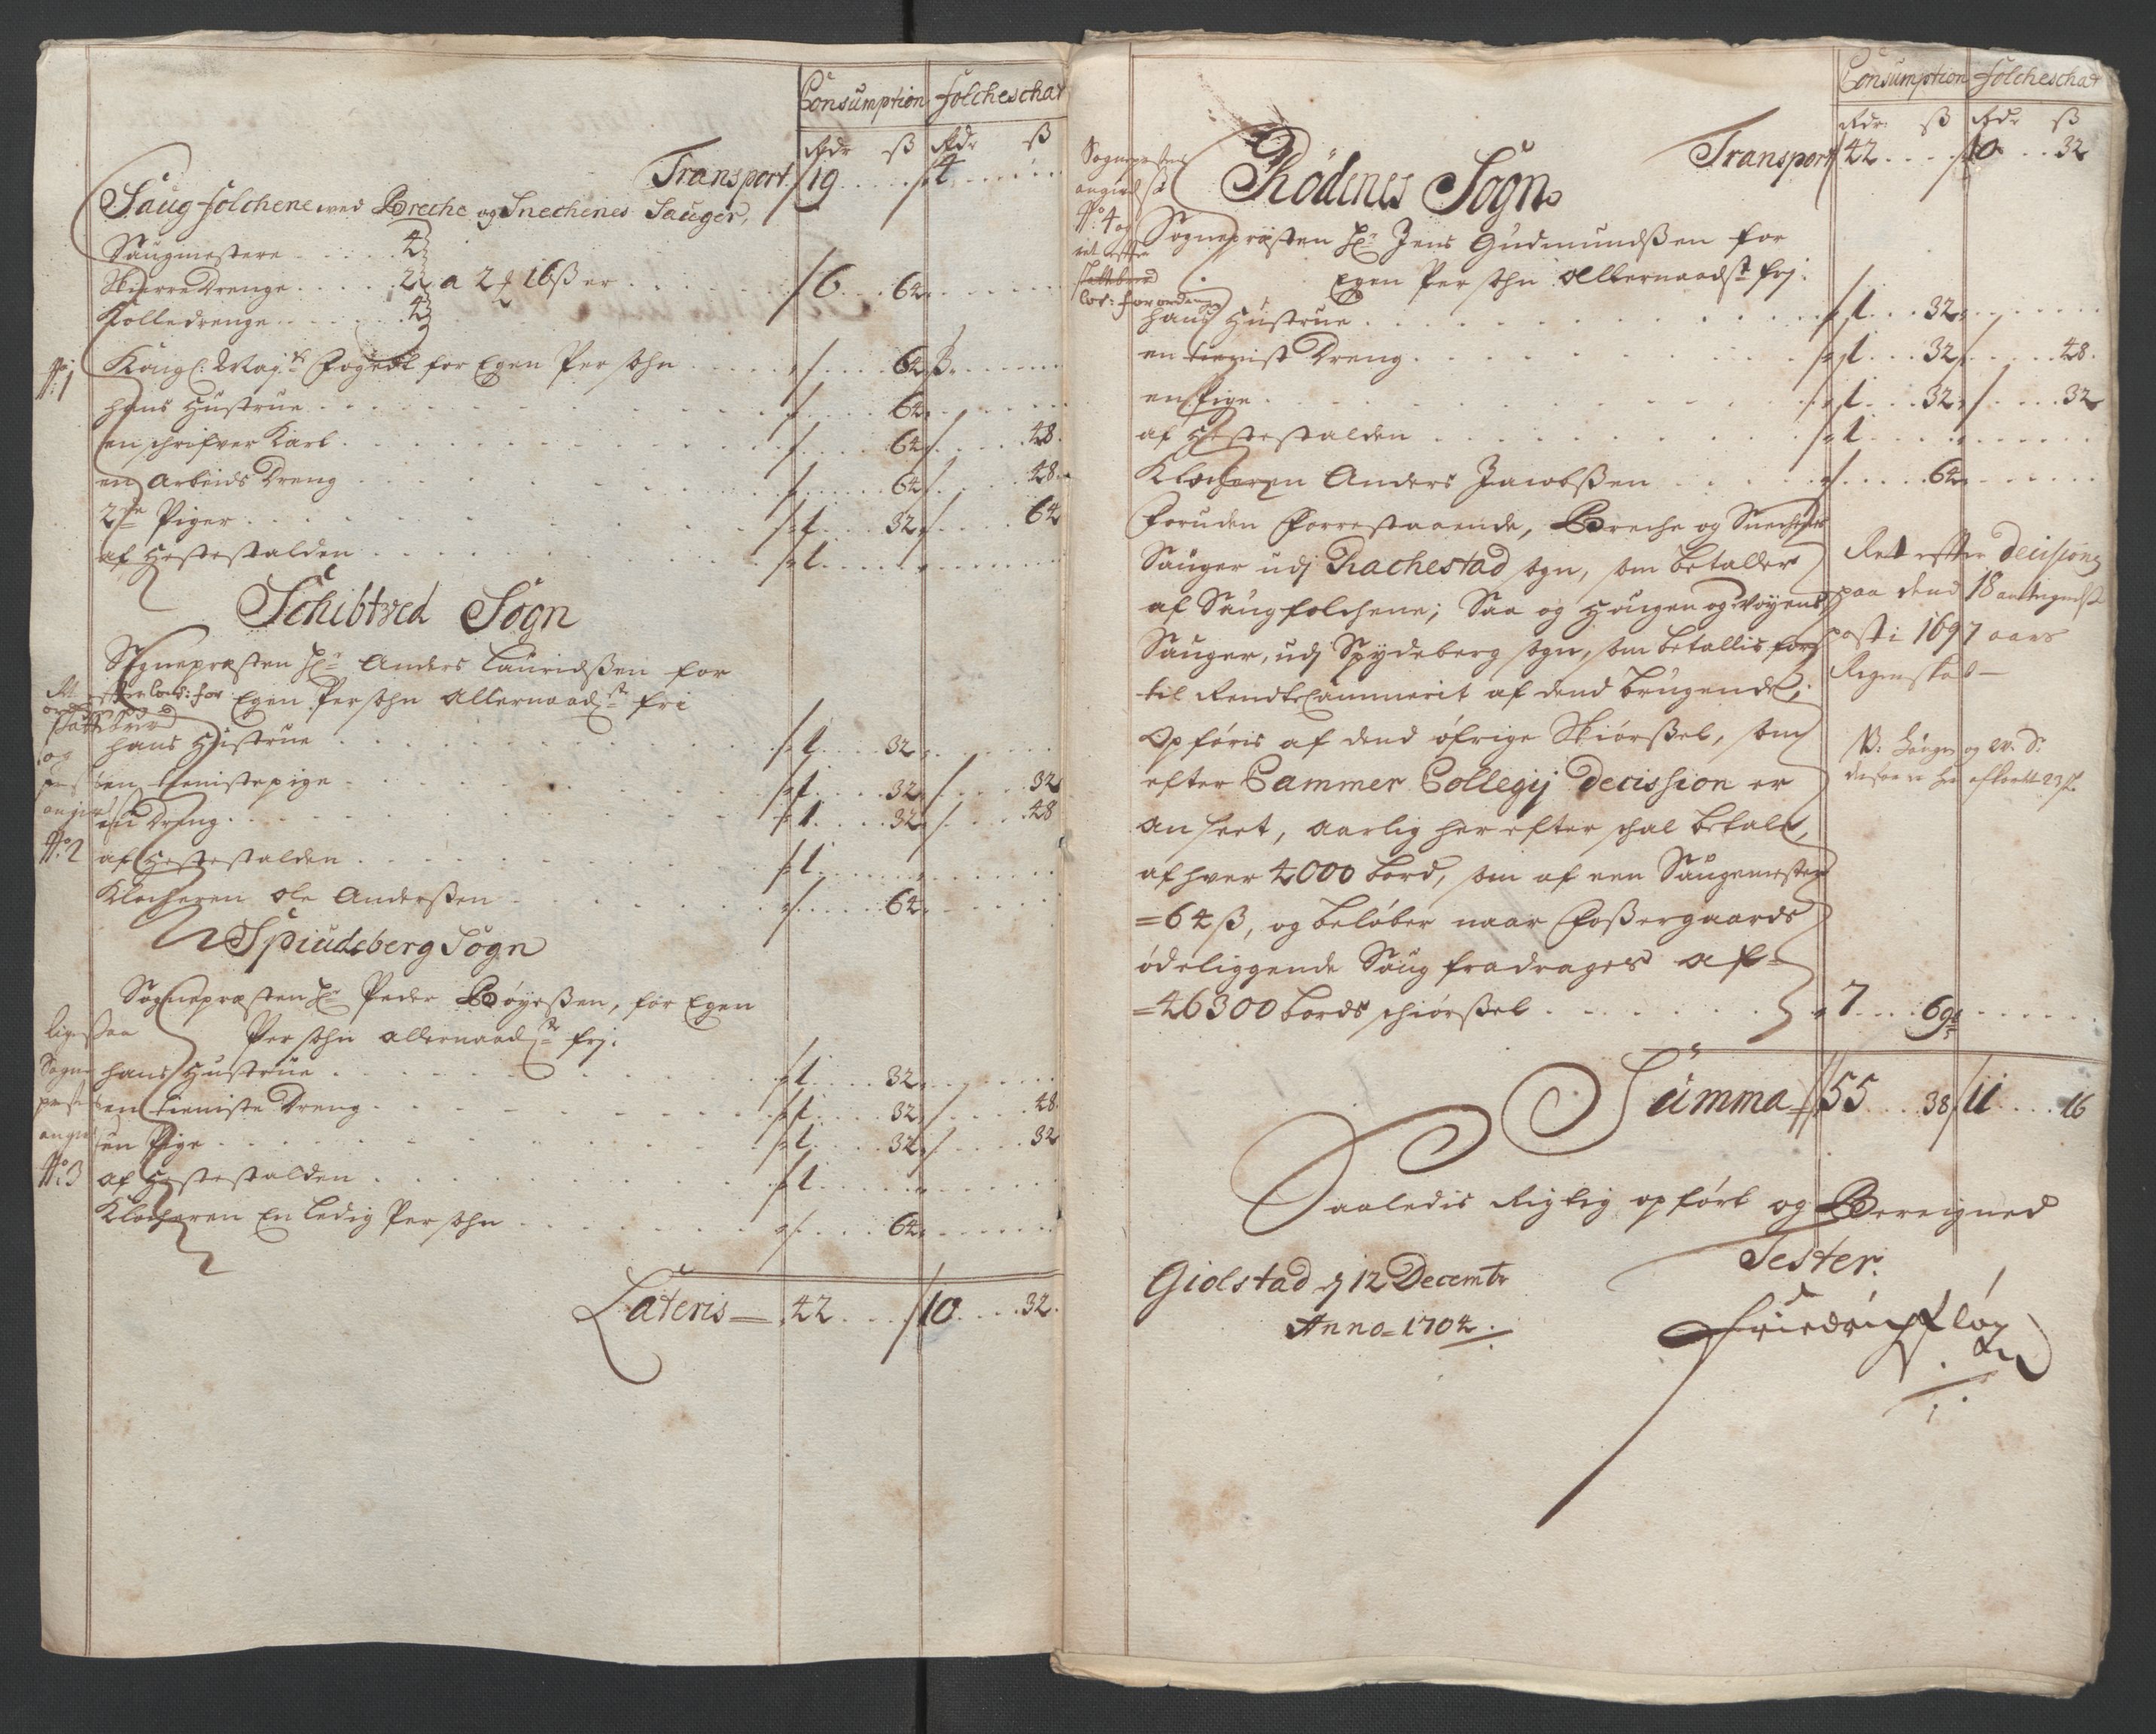 Consumption folcheschat
Rdr ß Rdr ß
Transport 19 4
Saug folchene wed Breche og Snechenes Sauger,
Saugmestere 4
Skierre Drenge 2 a 2 16 ß er 6 64
Kolledrenge 4
No 1 Kongl: May:ts Fogedt for Egen Persohn 64
hans Hustrue 64
en schrifver Karl 64 48
en Arbeids Dreng 64 48
2de Piger 1 32 64
af Hestestalden 1
Schibtved Sogn
Sognepræsten Hr Anders Lauridsßen for
Egen Persohn Allernaadst fri
hans Hustrue 1 32
en tienistepige 1 32 32
en Dreng 1 32 48
No 2 af Hestestalden 1
Klocheren Ole Anderßen 64
Spiudeberg Sogn
Sognepræsten Hr Peder Böyeßen, for Egen
Persohn allernaadst frj:
ligesaa
Sogne hans Hustrue 1 32
en tieniste Dreng 1 32 48
en Pige 1 32 32
No 3 af Hestestalden 1
Klocheren En ledig Persohn 64
Lateris 42 10 32
Consumption folcheschat
Rdr ß Rdr ß
Transport 42 10 32
Rödenes Sogn
No 4 og
Sognepræsten Hr Jens Gudmundßen for
Egen Persohn Allernaadst frj:
hans Hustrue 1 32
en tienist Dreng 1 32 48
en Pige 1 32 32
af Hestestalden 1
Klocheren Anders Jacobßen 64
Foruden Forrestaaende, Breche og Snechenes
Sauger udj Rachestad sogn, som betaller
af Saugfolchene; Saa og Hougen og Woyens
Sauger, udj Spydeberg sogn, som betallis for
til RendteCammerit af dend brugende;
Opföris af dend öfrige Skiörßel, som
efter Cammer Collegij Decission er
anseet, aarlig her efter schal betale,
af hver 4000 bord, som af een Saugemester
=64 ß, og belöber naar Foßergaards
ödeliggende Saug fradrages af
=46300 bords schiörßel 7 69
Ret efter Decision
paa dend 18 antegnelse
post i 1697 aars
Regenskab
Summa 55 38 11 16
Saaledis Rigtig opfört og Beregned
Tester.
Giolstad d 12 Decembr
Anno 1704.